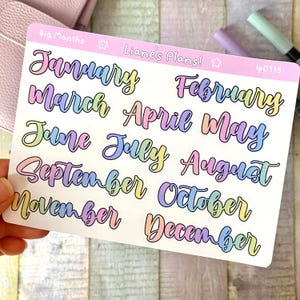 Big Months
Liane's Plans!
lp0115
January February
March April May
June July August
September October
November December